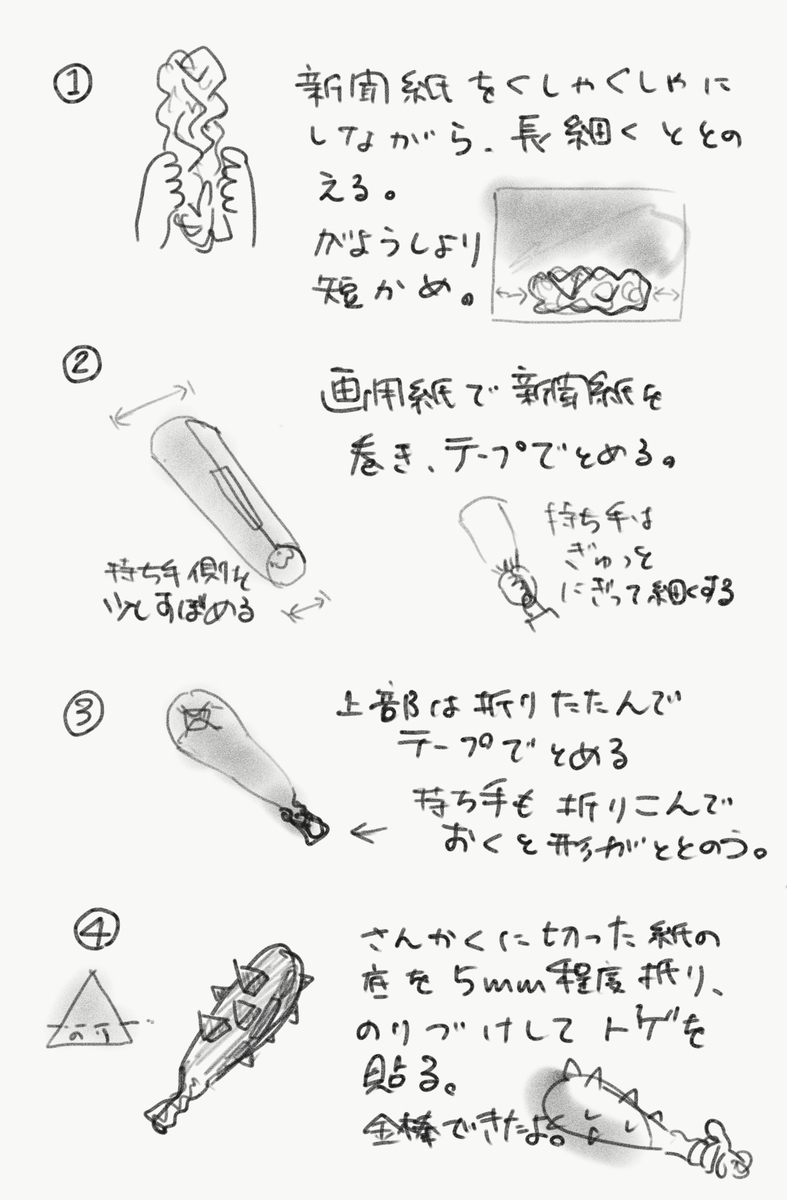 ①
新聞紙をくしゃくしゃに
しながら、長細くととの
える。
がようしより
短かめ。
②
画用紙で新聞紙を
巻き、テープでとめる。
持ち手は
ぎゅっと
にぎって細くする
持ち手側を
少しすぼめる
③
上部は折りたたんで
テープでとめる
持ち手も折りこんで
おくと形がととのう。
④
さんかくに切った紙の
底を5mm程度折り、
のりづけしてトゲを
貼る。
のり
金棒できたよ。